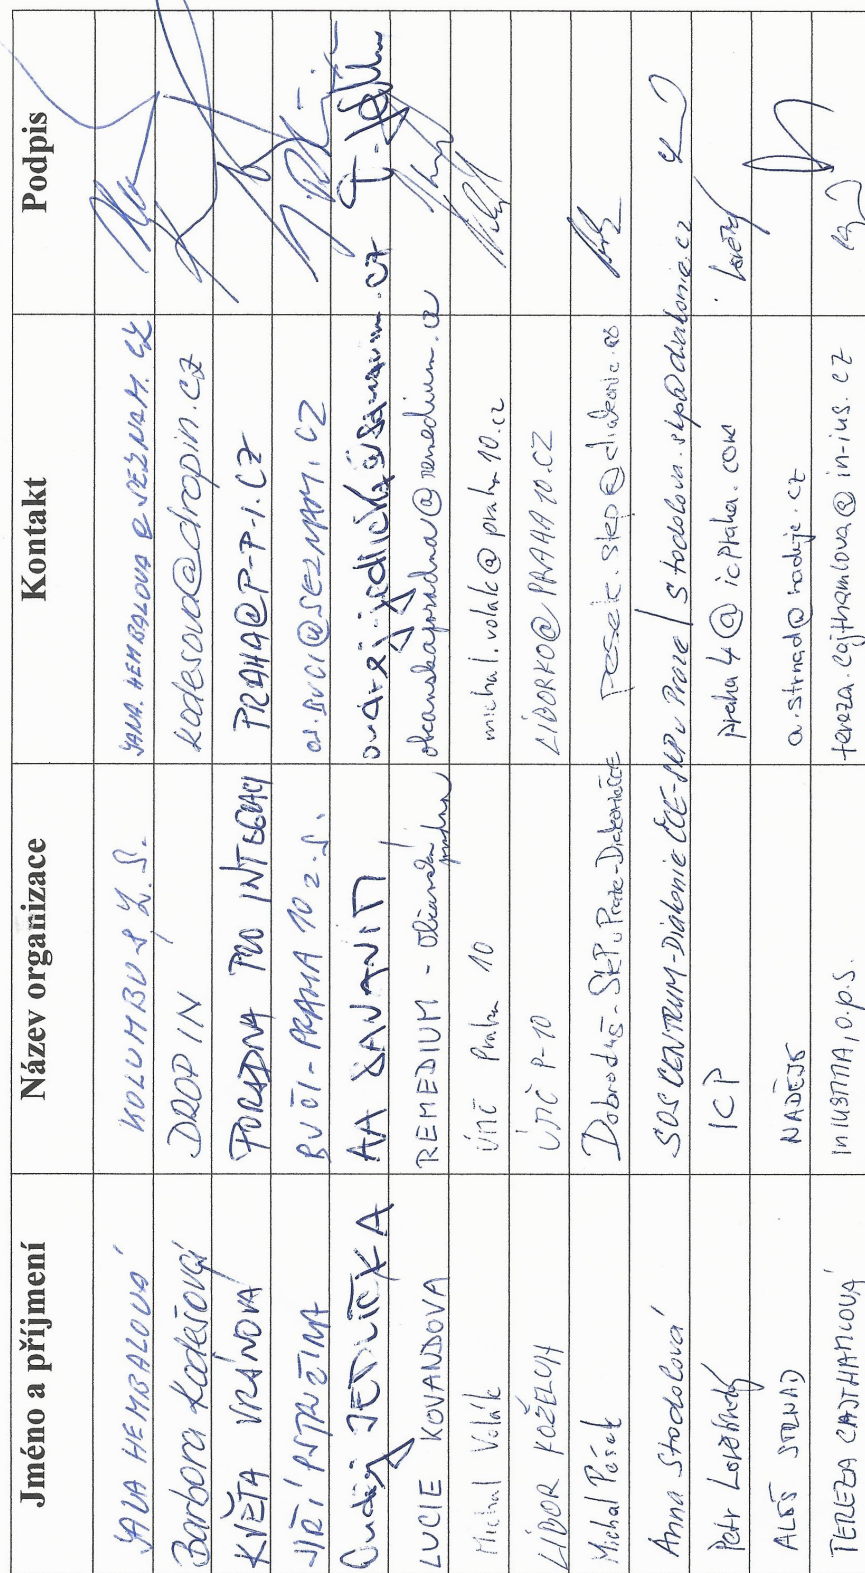 Jméno a příjmení Název organizace Kontakt Podpis
JANA HEMBALOVÁ KOLUMBUS Z.S. JANA.HEMBALOVA@SEZNAM.CZ
Barbora Kodešová DROP IN kodesova@dropin.cz
KVĚTA VRÁNOVÁ PORADNA PRO INTEGRACI PRAHA@P-P-I.CZ
JIŘÍ PSTRUŽINA BVČI-PRAHA 10 z.s. @SEZNAM.CZ
Ondřej JEDLIČKA AA ondrej.jedlicka@seznam.cz
LUCIE KOVANDOVA REMEDIUM - Občanská poradna obcanskaporadna@remedium.cz
Michal Volák ÚMČ Praha 10 michal.volak@praha10.cz
LIBOR KOŽELUH ÚMČ P-10 LIBORKO@PRAHA10.CZ
Michal Pešek Dobroduš-SKP v Praze-Diakonie ČCE pesek.skp@diakonie.cz
Anna Stodolová SOS CENTRUM-Diakonie ČCE-SKP v Praze stodolova.skp@diakonie.cz
Petr ICP praha4@icpraha.com
ALEŠ STRNAD NADĚJE a.strnad@nadeje.cz
TEREZA CAJTHAMLOVÁ IN IUSTITIA, O.P.S. tereza.cajthamlova@in-ius.cz